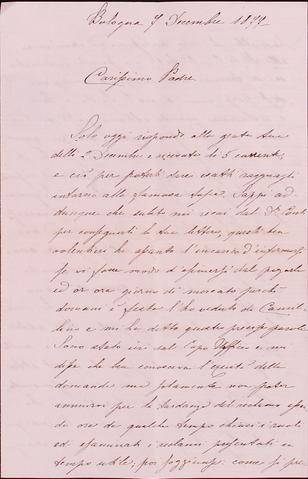 Bologna 7 Decembre 1899
Carissimo Padre
Solo oggi rispondo alla grata tua
delli 2 Decembre e ricevuta li 5 corrente,
e ciò per poterti dare esatti ragguagli
intorno alla famosa tassa. Sappi ad
dunque che subito mi recai dal
per consegnarli le due lettere, questi ben
volentieri ha assunto l'incarico d'informarsi
se vi fosse modo d'esimersi dal pagarla
ed or ora giorno di mercato perchè
domani è festa l'ho veduto da
e mi ha detto queste precise parole
Sono stato ieri dal Capo Uffizio e mi
disse che han conosciuta della
domanda ma solamente non poter
annuirvi per la tardanza del reclamo
do ora da qualche tempo chiusi i ruoli
ed esaminati i reclami presentati in
tempo utile, poi soggiunse come si